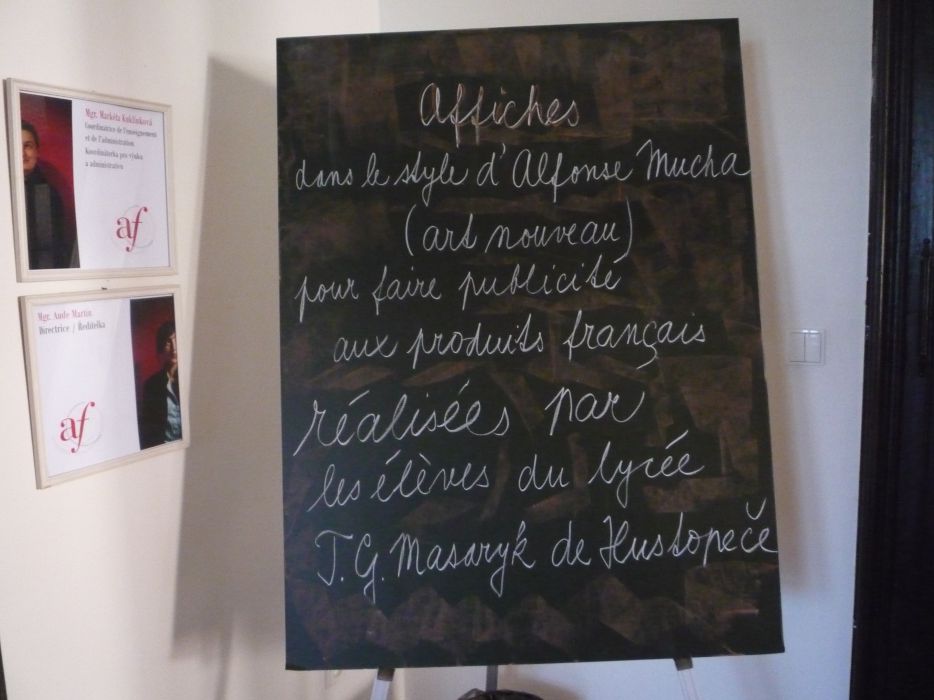 Mgr. Markéta Kuklínková
Coordinatrice de l'enseignement
et de l'administration
Koordinátorka pro výuku
a administration
af
Mgr. Aude Martin
Directrice / Ředitelka
af
Affiches
dans le style d'Alfonse Mucha
(art nouveau)
pour faire publicité
aux produits français
réalisées par
les élèves du lycée
T.G. Masaryk de Hustopeče